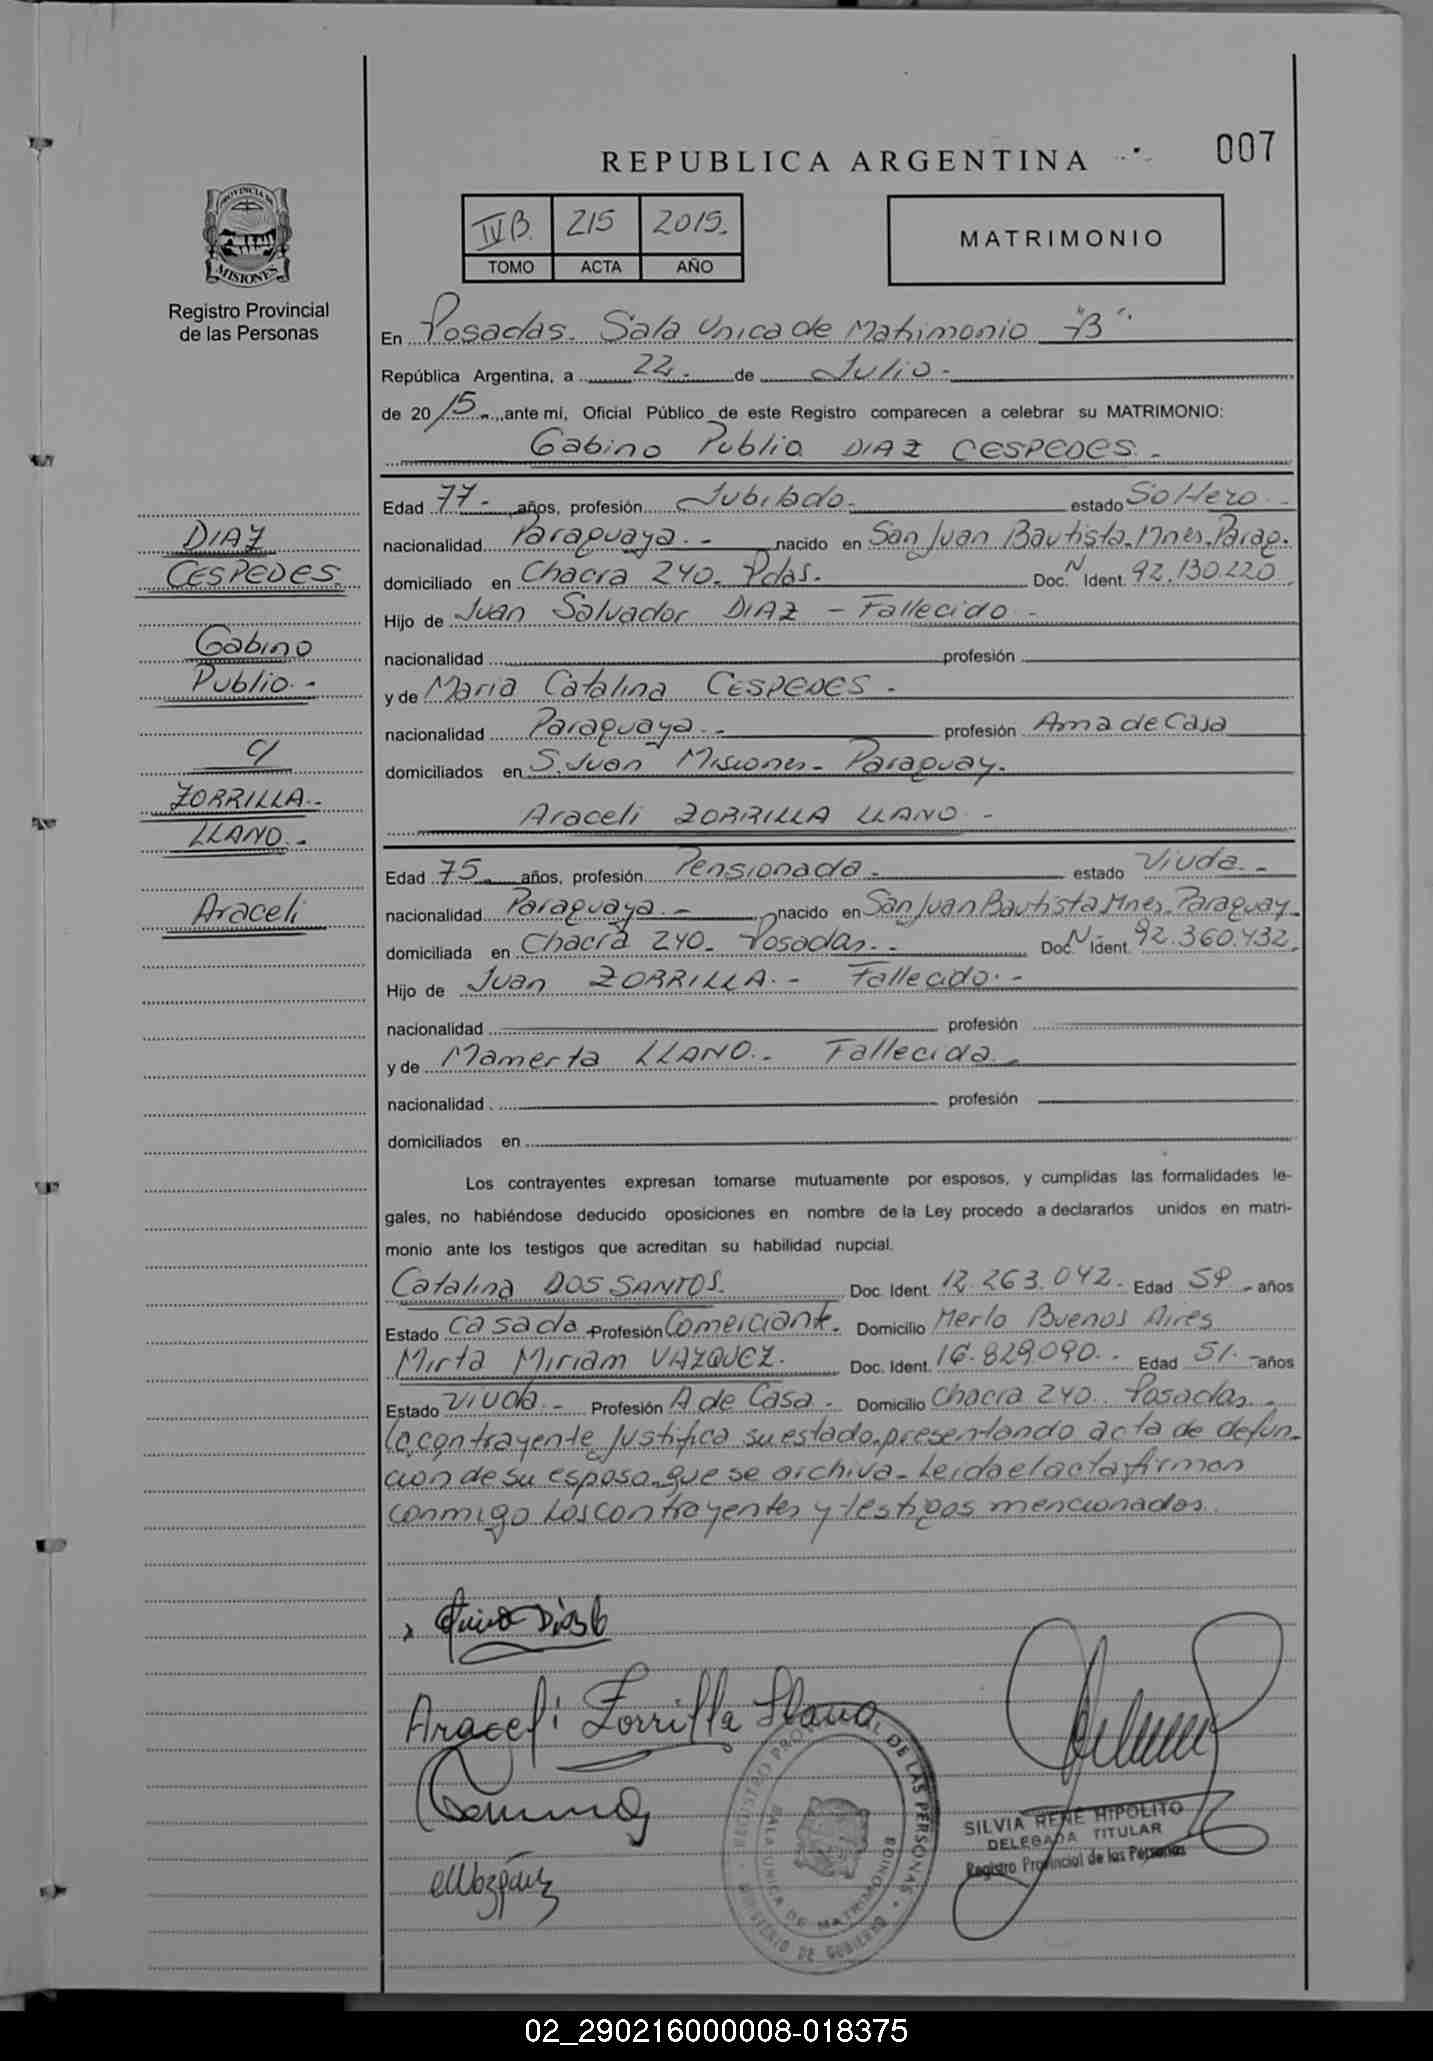 REPUBLICA ARGENTINA
007
IV B. 215 2015.
TOMO ACTA AÑO
MATRIMONIO
PROVINCIA DE
MISIONES
Registro Provincial
de las Personas
En Posadas. Sala Unica de Matrimonio "B"
República Argentina, a 22. de Julio.-
de 2015., ante mí, Oficial Público de este Registro comparecen a celebrar su MATRIMONIO:
Gabino Publio DIAZ CESPEDES.-
Edad 77.- años, profesión Jubilado. estado Soltero.-
nacionalidad Paraguaya.- nacido en San Juan Bautista-Mnes-Parag.
domiciliado en Chacra 240. Pdas. Doc. N Ident. 92.130.220
Hijo de Juan Salvador DIAZ - Fallecido.-
nacionalidad profesión
y de Maria Catalina CESPEDES.-
nacionalidad Paraguaya.- profesión Ama de Casa
domiciliados en S. Juan Misiones- Paraguay.
Araceli ZORRILLA LLANO.-
Edad 75.- años, profesión Pensionada.- estado Viuda.-
nacionalidad Paraguaya.- nacido en San Juan Bautista Mnes. Paraguay.
domiciliada en Chacra 240. Posadas.- Doc. N Ident. 92.360.432
Hijo de Juan ZORRILLA.- Fallecido.-
nacionalidad profesión
y de Mamerta LLANO.- Fallecida
nacionalidad profesión
domiciliados en
DIAZ
CESPEDES.
Gabino
Publio.-
c/
ZORRILLA.-
LLANO.-
Araceli
Los contrayentes expresan tomarse mutuamente por esposos, y cumplidas las formalidades le-
gales, no habiéndose deducido oposiciones en nombre de la Ley procedo a declararlos unidos en matri-
monio ante los testigos que acreditan su habilidad nupcial.
Catalina DOS SANTOS. Doc. Ident. 12.263.042. Edad 59.- años
Estado Casada Profesión Comerciante. Domicilio Merlo Buenos Aires
Mirta Miriam VAZQUEZ. Doc. Ident. 16.829.090.- Edad 51.- años
Estado Viuda.- Profesión A de Casa. Domicilio Chacra 240. Posadas.
La contrayente justifica su estado presentando acta de defun-
ción de su esposo, que se archiva. Leida el acta firman
conmigo los contrayentes y testigos mencionados.
Araceli Zorrilla Llano
REGISTRO PROVINCIAL DE LAS PERSONAS
SALA UNICA DE MATRIMONIO B
MINISTERIO DE GOBIERNO
SILVIA RENE HIPOLITO
DELEGADA TITULAR
Registro Provincial de las Personas
02_290216000008-018375